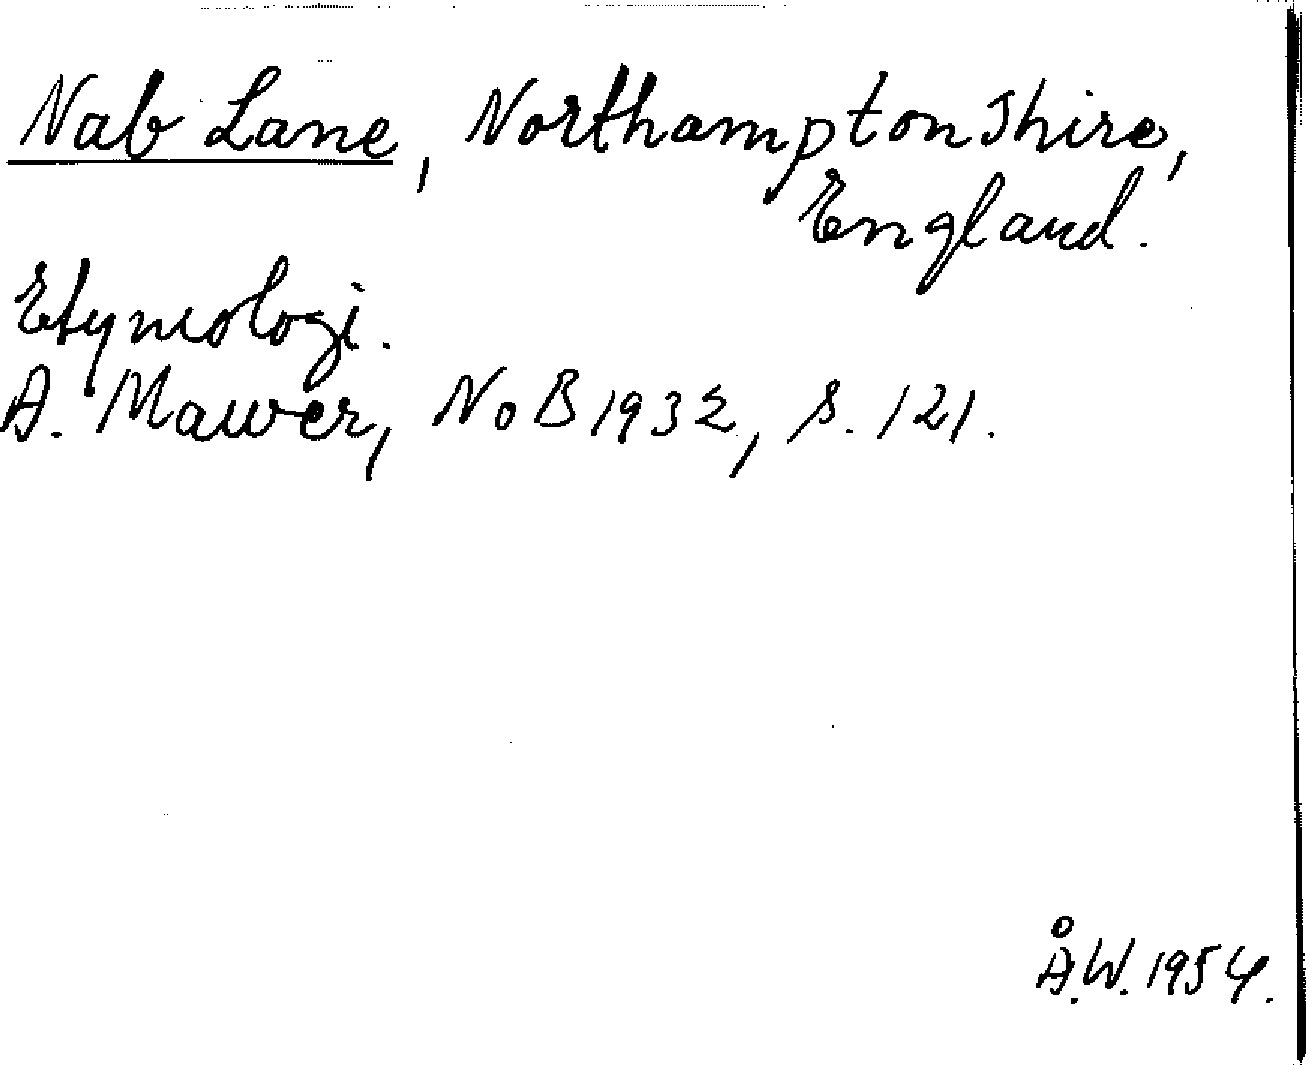 Nab Lane, Northamptonshire,
England.
Etymologi.
A. Mawer, NoB 1932, s. 121.
Å.W. 1954.